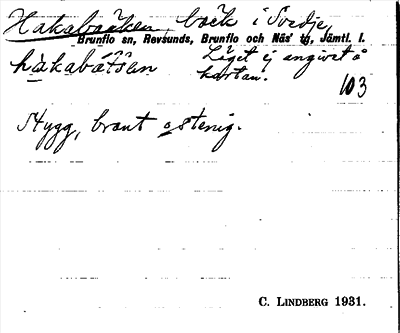 Hakabäcken, bäck i Svedje,
Brunflo sn, Revsunds, Brunflo och Näs' tg, Jämtl. l.
Läget ej angivet å
hàkabä́ttśen kartan.
103
Stygg, brant o stenig.
C. LINDBERG 1931.